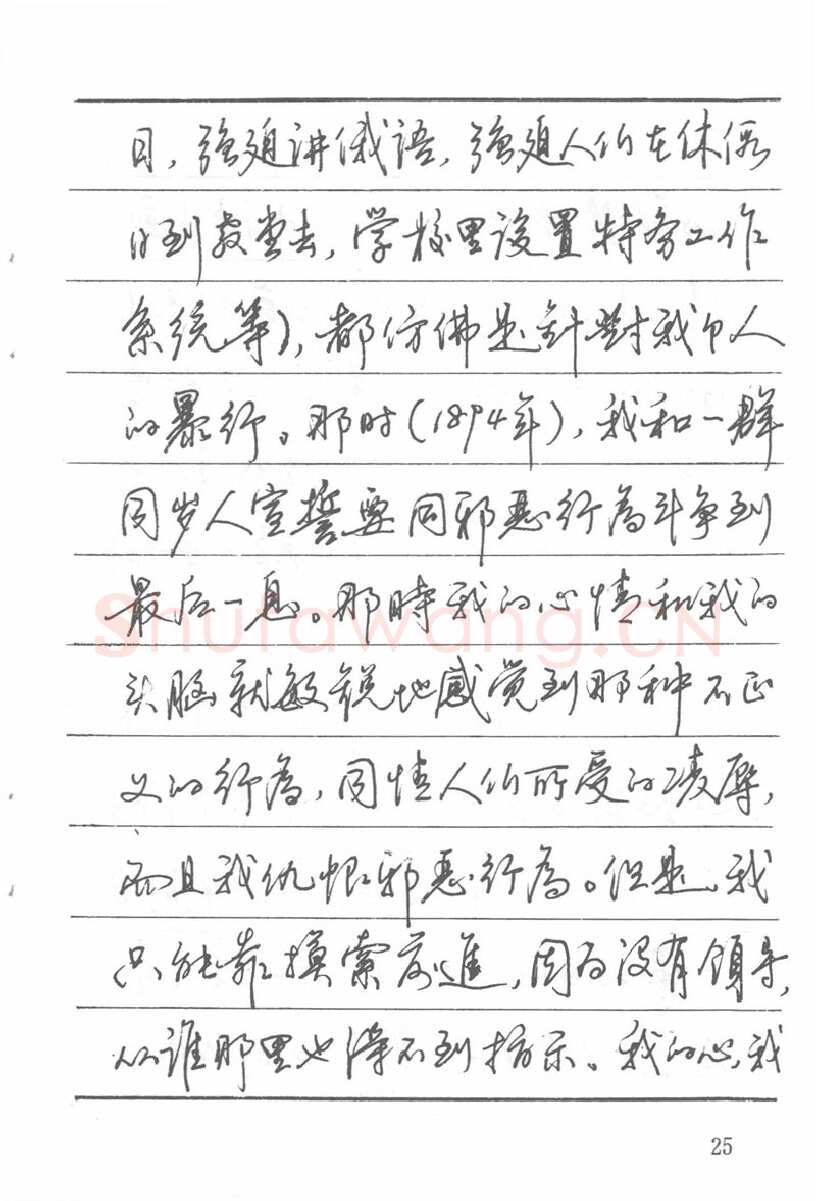 目，强迫讲俄语，强迫人们在休假
日到教堂去，学校里设置特务工作
系统等），都仿佛是針對我個人
的暴行。那时（1894年），我和一群
同岁人宣誓要同邪恶行為斗争到
最后一息。那時我的心情和我的
头脑就敏锐地感觉到那种不正
义的行為，同情人们所受的凌辱，
而且我仇恨邪恶行為。但是，我
只能靠摸索前進，因为没有領导，
从谁那里也得不到指示。我的心，我
25
Shufawang.CN